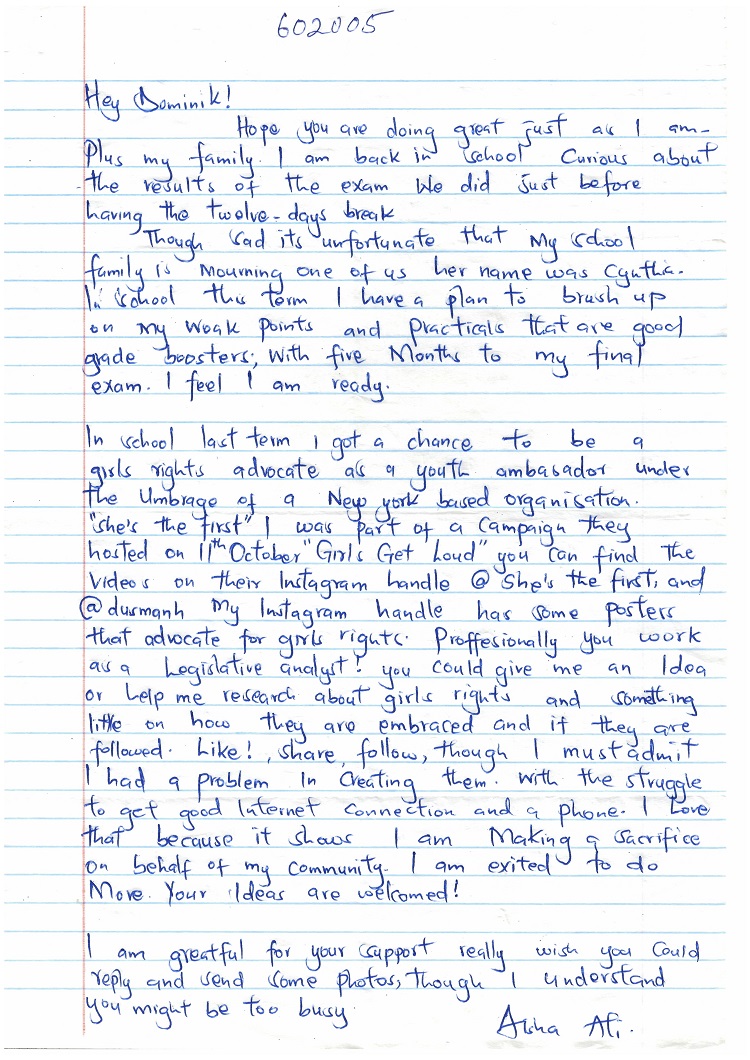 602005
Hey Dominik!
Hope you are doing great just as I am-
Plus my family. I am back in school Curious about
the results of the exam We did just before
having the twelve-days break
Though sad its unfortunate that My school
family is Mourning one of us her name was Cynthia.
In school this term I have a plan to brush up
on my weak points and practicals that are good
grade boosters; With five Months to my final
exam. I feel I am ready.
In school last term I got a chance to be a
girls rights advocate as a youth ambasador under
the Umbrage of a New york based organisation.
"She's the first" I was part of a Campaign they
hosted on 11th October "Girls Get Loud" you can find the
videos on their Instagram handle @ She's the first, and
@dusmanh My Instagram handle has some posters
that advocate for girls rights. Proffesionally you work
as a Legislative analyst! you could give me an Idea
or help me research about girls rights and something
little on how they are embraced and if they are
followed. Like!, share, follow, though I must admit
I had a problem In Creating them. With the struggle
to get good Internet Connection and a phone. I Love
that because it shows I am Making a sacrifice
on behalf of my Community. I am exited to do
More. Your Ideas are welcomed!
I am greatful for your support really wish you Could
reply and send some photos, though I understand
you might be too busy.
Aisha Afi.